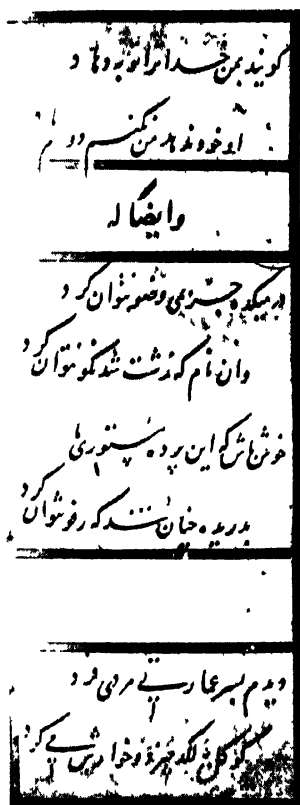 گویند بمن خدا ترا توبه دهاد
او خود ندهد من نکنم دو دهد
وایضا له
در میکده جز بمی وضو نتوان کرد
وان نام که زشت شد نکو نتوان کرد
خوش باش که این پرده مستوری ما
بدریده چنان شد که رفو نتوان کرد
دیدم بسر عمارتی مردی فرد
کو گل بلگد میزد و خوارش می کرد